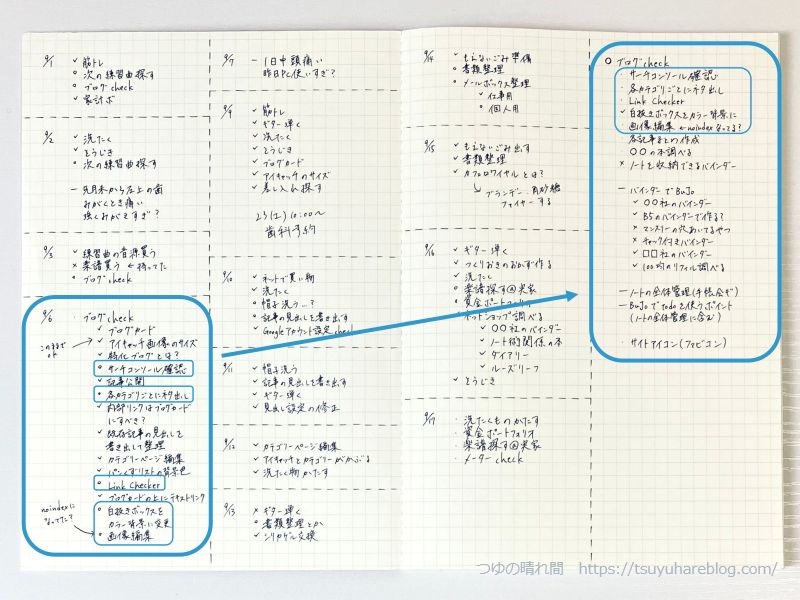 9/1 ✓ 筋トレ
○ 次の練習曲探す
✓ ブログcheck
✓ 家計ボ
9/2 ✓ 洗たく
✓ そうじき
○ 次の練習曲探す
— 先月末から左上の歯
みがくとき痛い
強くみがきすぎ?
9/3 ✓ 練習曲の音源買う
× 楽譜買う ← 持ってた
○ ブログcheck
9/6 · ブログcheck
✓ ブログカード
このままでOK
✓ アイキャッチ画像のサイズ
✓ 特化ブログとは?
○ サーチコンソール確認
✓ 記事公開
○ 各カテゴリごとにネタ出し
✓ 内部リンクはブログカード
にすべき?
✓ 既存記事の見出しを
書き出して整理
✓ カテゴリーページ編集
✓ パンくずリストの背景色
○ Link Checker
✓ ブログカードの上にテキストリンク
noindexになってた?
○ 白抜きボックスを
カラー背景に変更
○ 画像編集
9/7 — 1日中頭痛い
昨日PC使いすぎ?
9/9 ✓ 筋トレ
✓ ギター弾く
✓ 洗たく
✓ そうじき
✓ ブログカード
✓ アイキャッチのサイズ
✓ 差し入れ探す
23(土) 10:00~
歯科予約
9/10 ✓ ネットで買い物
✓ 洗たく
○ 帽子洗う…?
✓ 記事の見出しを書き出す
✓ Googleアカウント設定check
9/11 ✓ 帽子洗う
✓ 記事の見出しを書き出す
✓ ギター弾く
✓ 見出し設定の修正
9/12 ✓ カテゴリーページ編集
✓ アイキャッチとカテゴリーがかぶる
✓ 洗たく物かたす
9/13 × ギター弾く
○ 書類整理とか
✓ シリカゲル交換
9/14 ✓ もえないごみ準備
○ 書類整理
✓ メールボックス整理
✓ 仕事用
○ 個人用
9/15 ✓ もえないごみ出す
✓ 書類整理
✓ カフェロワイヤルとは?
ブランデー、角砂糖
ファイヤーする
9/16 ✓ ギター弾く
✓ つくりおきのおかず作る
✓ 洗たく
○ 楽譜探す@実家
○ 資金ポートフォリオ
✓ ネットショップ調べる
✓ ○○社のバインダー
✓ ノート術関係の本
✓ ダイアリー
✓ ルーズリーフ
✓ そうじき
9/17 · 洗たくものかたす
· 資金ポートフォリオ
· 楽譜探す@実家
· メーターcheck
○ ブログcheck
· サーチコンソール確認
· 各カテゴリごとにネタ出し
· Link Checker
✓ 白抜きボックスをカラー背景に
画像編集 ← noindexなってる?
· 各記事まとの作成
○○の本調べる
× ノートを収納できるバインダー
— バインダーでBuJo
✓ ○○社のバインダー
✓ B5のバインダーで作る?
× マンスリーの穴あいてるやつ
× チャック付きバインダー
✓ □□社のバインダー
✓ 100均のリフィル調べる
— ノートの全体管理(手帳会ギ)
— BuJoでtodoを使うポイント
(ノートの全体管理に含む)
· サイトアイコン(ファビコン)
つゆの晴れ間 https://tsuyuhareblog.com/